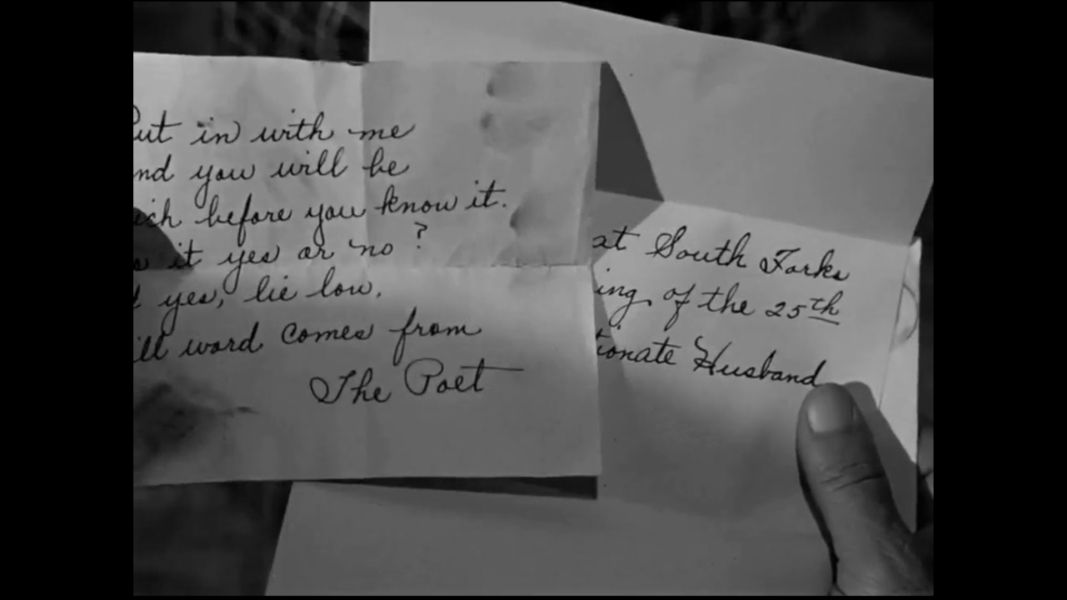 Put in with me
and you will be
rich before you know it.
Is it yes or no?
If yes, lie low,
till word comes from
The Poet
at South Forks
ing of the 25th
tionate Husband